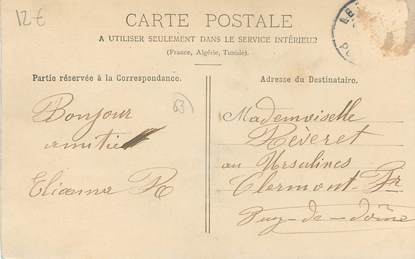 12 €
CARTE POSTALE
A UTILISER SEULEMENT DANS LE SERVICE INTÉRIEUR
(France, Algérie, Tunisie).
Partie réservée à la Correspondance.
Adresse du Destinataire.
Bonjour
amitié
Elianne R
63
Mademoiselle
Réveret
au Ursulines
Clermont-Fr
Puy-de-dôme